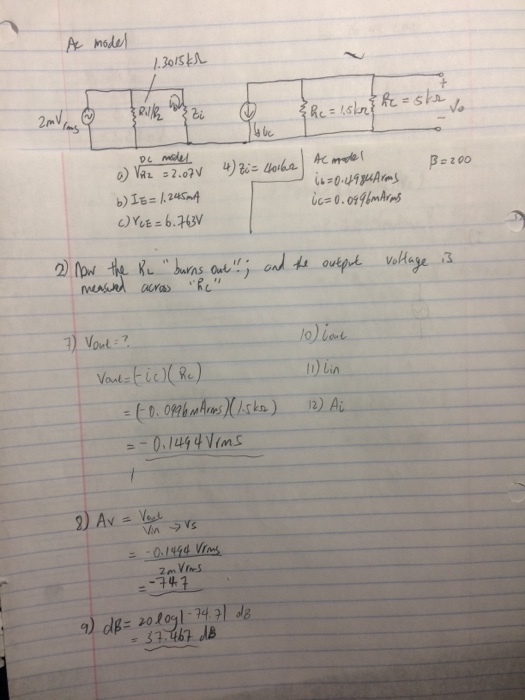 Ac model
1.3015kΩ
2mVrms
R1//R2
Zi
ic
Rc = 1.5kΩ
RL = 5kΩ
+
Vo
-
DC model
a) VR2 = 2.07V
b) IE = 1.245mA
c) VCE = 6.763V
4) Zi = 4016Ω
Ac model
ib = 0.498µArms
ic = 0.0996mArms
β = 200
2) Now the RL "burns out"; and the output voltage is
measured across "Rc"
7) Vout = ?
Vout = (-ic)(Rc)
= (-0.0996mArms)(1.5kΩ)
= -0.1494Vrms
10) iout
11) iin
12) Ai
8) Av = Vout
Vin → Vs
= -0.1494 Vrms
2mVrms
= -74.7
9) dB = 20log|-74.7| dB
= 37.467 dB